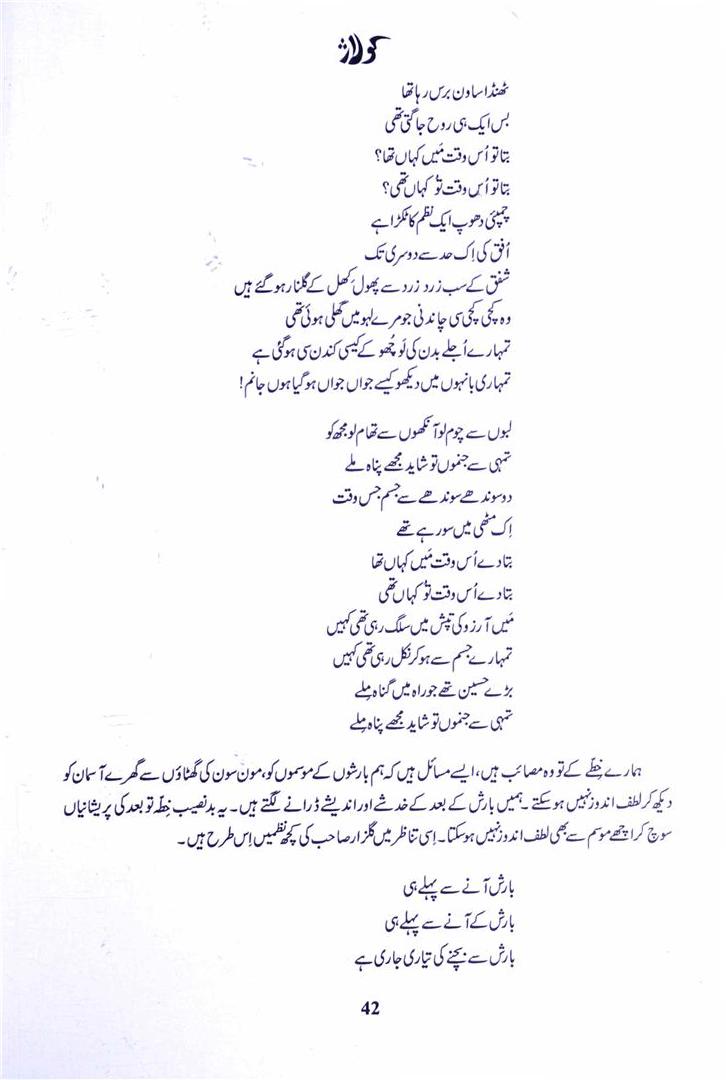 کولاژ
ٹھنڈا ساون برس رہا تھا
بس ایک ہی روح جاگتی تھی
بتا تو اُس وقت مَیں کہاں تھا؟
بتا تو اُس وقت تُو کہاں تھی؟
چمپئی دھوپ ایک نظم کا ٹکڑا ہے
اُفق کی اِک حد سے دوسری تک
شفق کے سب زرد زرد سے پھول کھل کے گلنار ہو گئے ہیں
وہ کچی کچی سی چاندنی جو مرے لہو میں گھلی ہوئی تھی
تمہارے اُجلے بدن کی لَو چُھو کے کیسی کندن سی ہو گئی ہے
تمہاری بانہوں میں دیکھو کیسے جواں جواں ہو گیا ہوں جانم!
لبوں سے چوم لو آنکھوں سے تھام لو مجھ کو
تمہی سے جنموں تو شاید مجھے پناہ ملے
دو سوندھے سوندھے سے جسم جس وقت
اِک مٹھی میں سو رہے تھے
بتا دے اُس وقت مَیں کہاں تھا
بتا دے اُس وقت تُو کہاں تھی
مَیں آرزو کی تپش میں سلگ رہی تھی کہیں
تمہارے جسم سے ہو کر نکل رہی تھی کہیں
بڑے حسین تھے جو راہ میں گناہ مِلے
تمہی سے جنموں تو شاید مجھے پناہ مِلے
ہمارے خِطّے کے تو وہ مصائب ہیں، ایسے مسائل ہیں کہ ہم بارشوں کے موسموں کو، مون سون کی گھٹاؤں سے گھرے آسمان کو
دیکھ کر لطف اندوز نہیں ہو سکتے۔ ہمیں بارش کے بعد کے خدشے اور اندیشے ڈرانے لگتے ہیں۔ یہ بدنصیب خِطّہ تو بعد کی پریشانیاں
سوچ کر اچھے موسم سے بھی لطف اندوز نہیں ہو سکتا۔ اِسی تناظر میں گلزار صاحب کی کچھ نظمیں اِس طرح ہیں۔
بارش آنے سے پہلے ہی
بارش کے آنے سے پہلے ہی
بارش سے بچنے کی تیاری جاری ہے
42